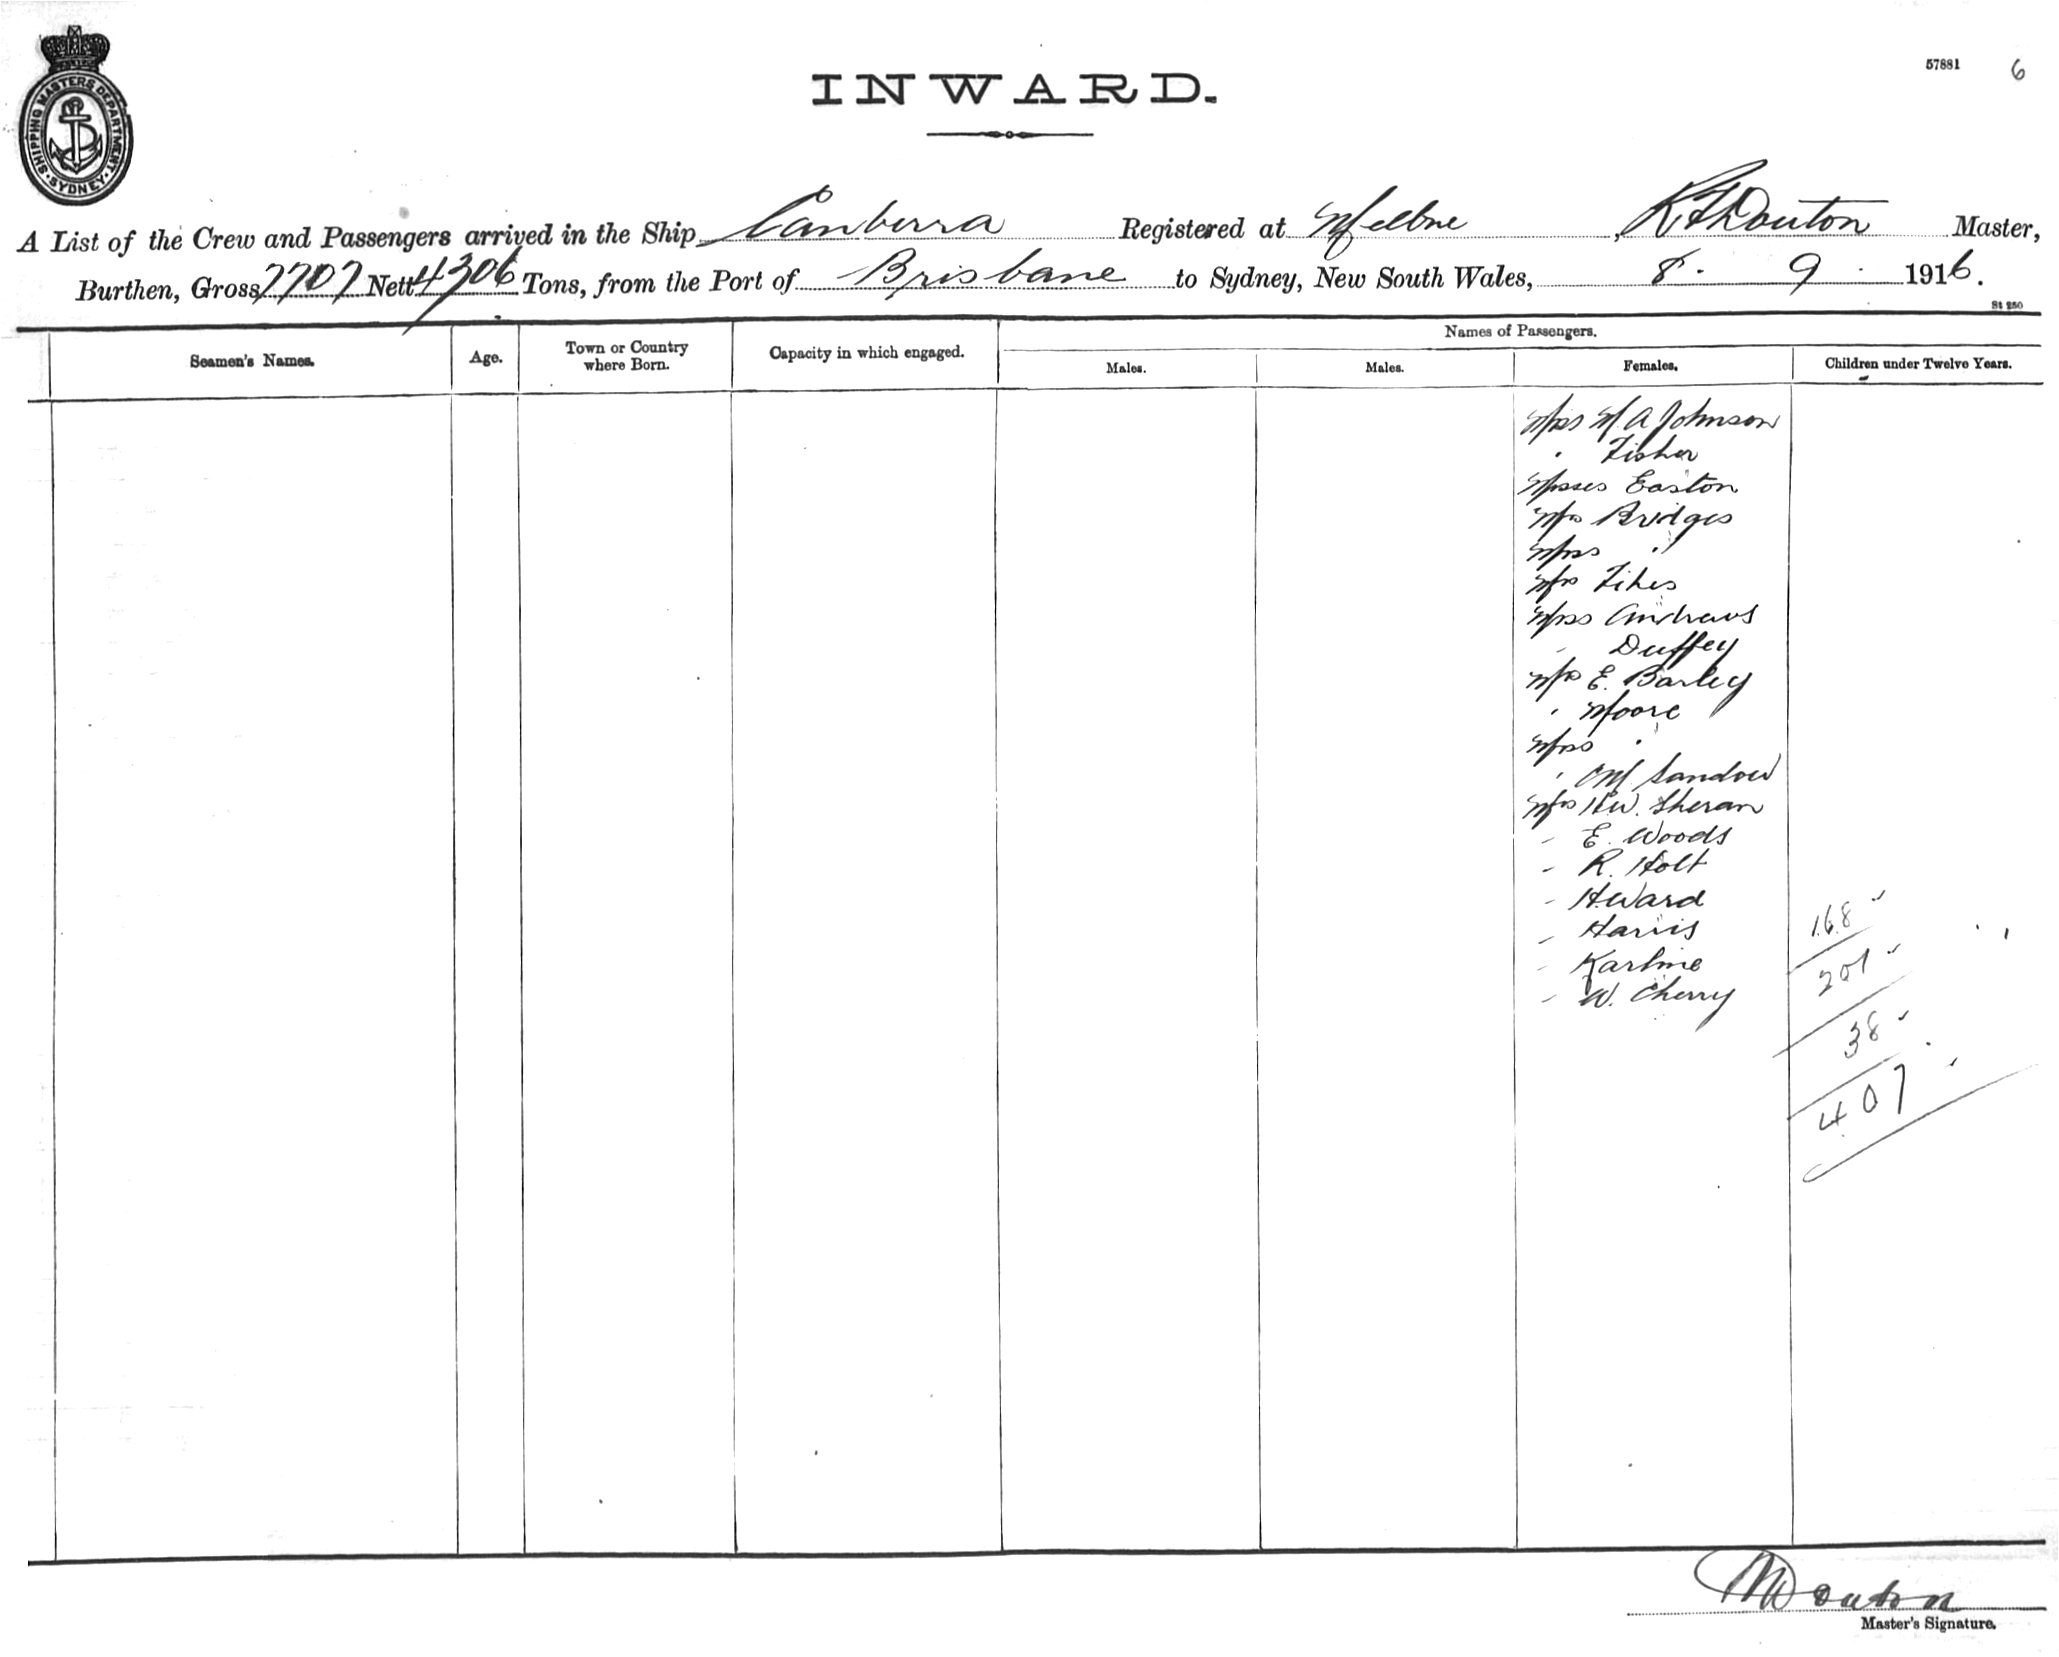 57881 6
SHIPPING MASTERS DEPARTMENT. SYDNEY.
INWARD.
A List of the Crew and Passengers arrived in the Ship Canberra Registered at Melbne, R H Douton Master,
Burthen, Gross 7707 Nett 4306 Tons, from the Port of Brisbane to Sydney, New South Wales, 8. 9. 1916.
St 250
Names of Passengers.
Seamen's Names. Age. Town or Country where Born. Capacity in which engaged. Males. Males. Females. Children under Twelve Years.
Miss M. A Johnson
" Fisher
Misses Easton
Mrs Bridges
Miss "
Mrs
Miss Andrews
" Duffey
Mrs E. Barley
" Moore
Miss "
" Sandow
Mrs H.W. Sheran
" E. Woods
" R. Holt
" H. Ward
" Harris
"
" W. Cherry
168
201
38
407
Douton
Master's Signature.